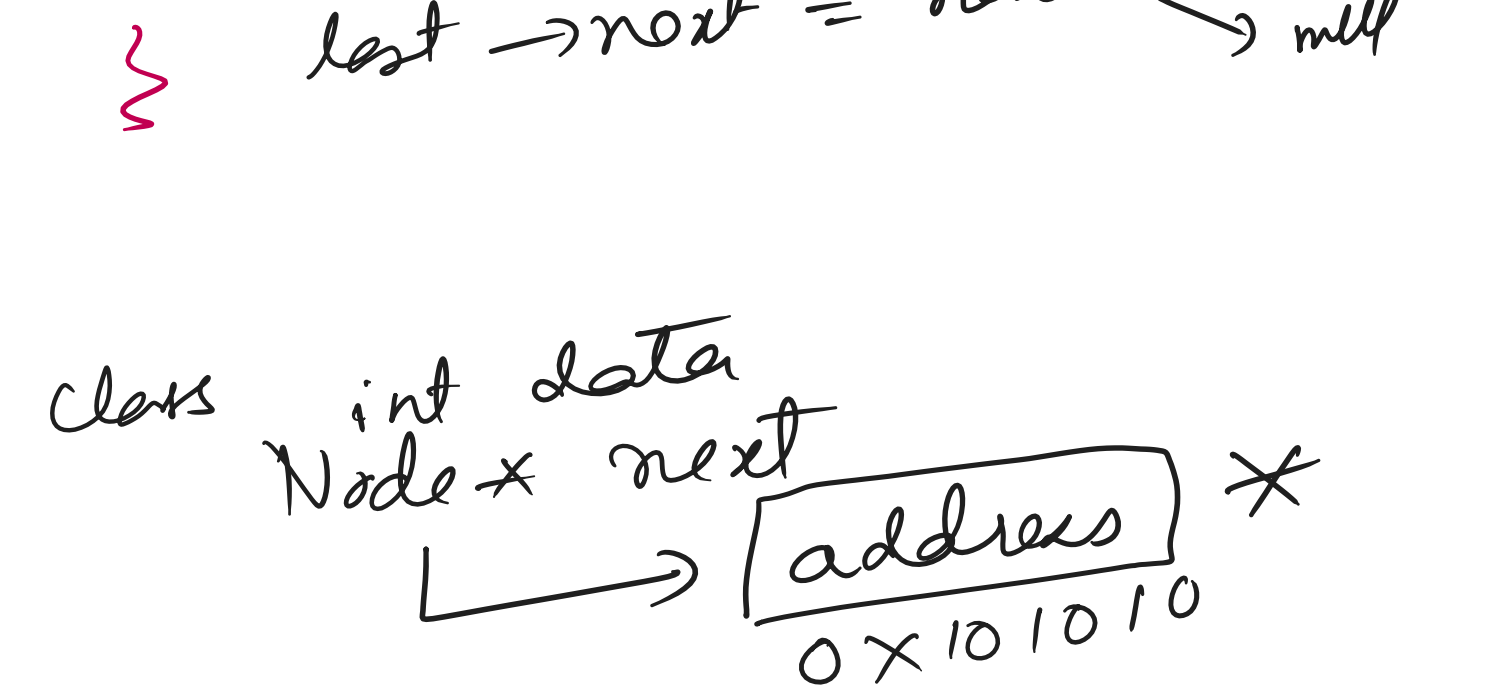 last → next =
class int data
Node * next
address *
0x101010